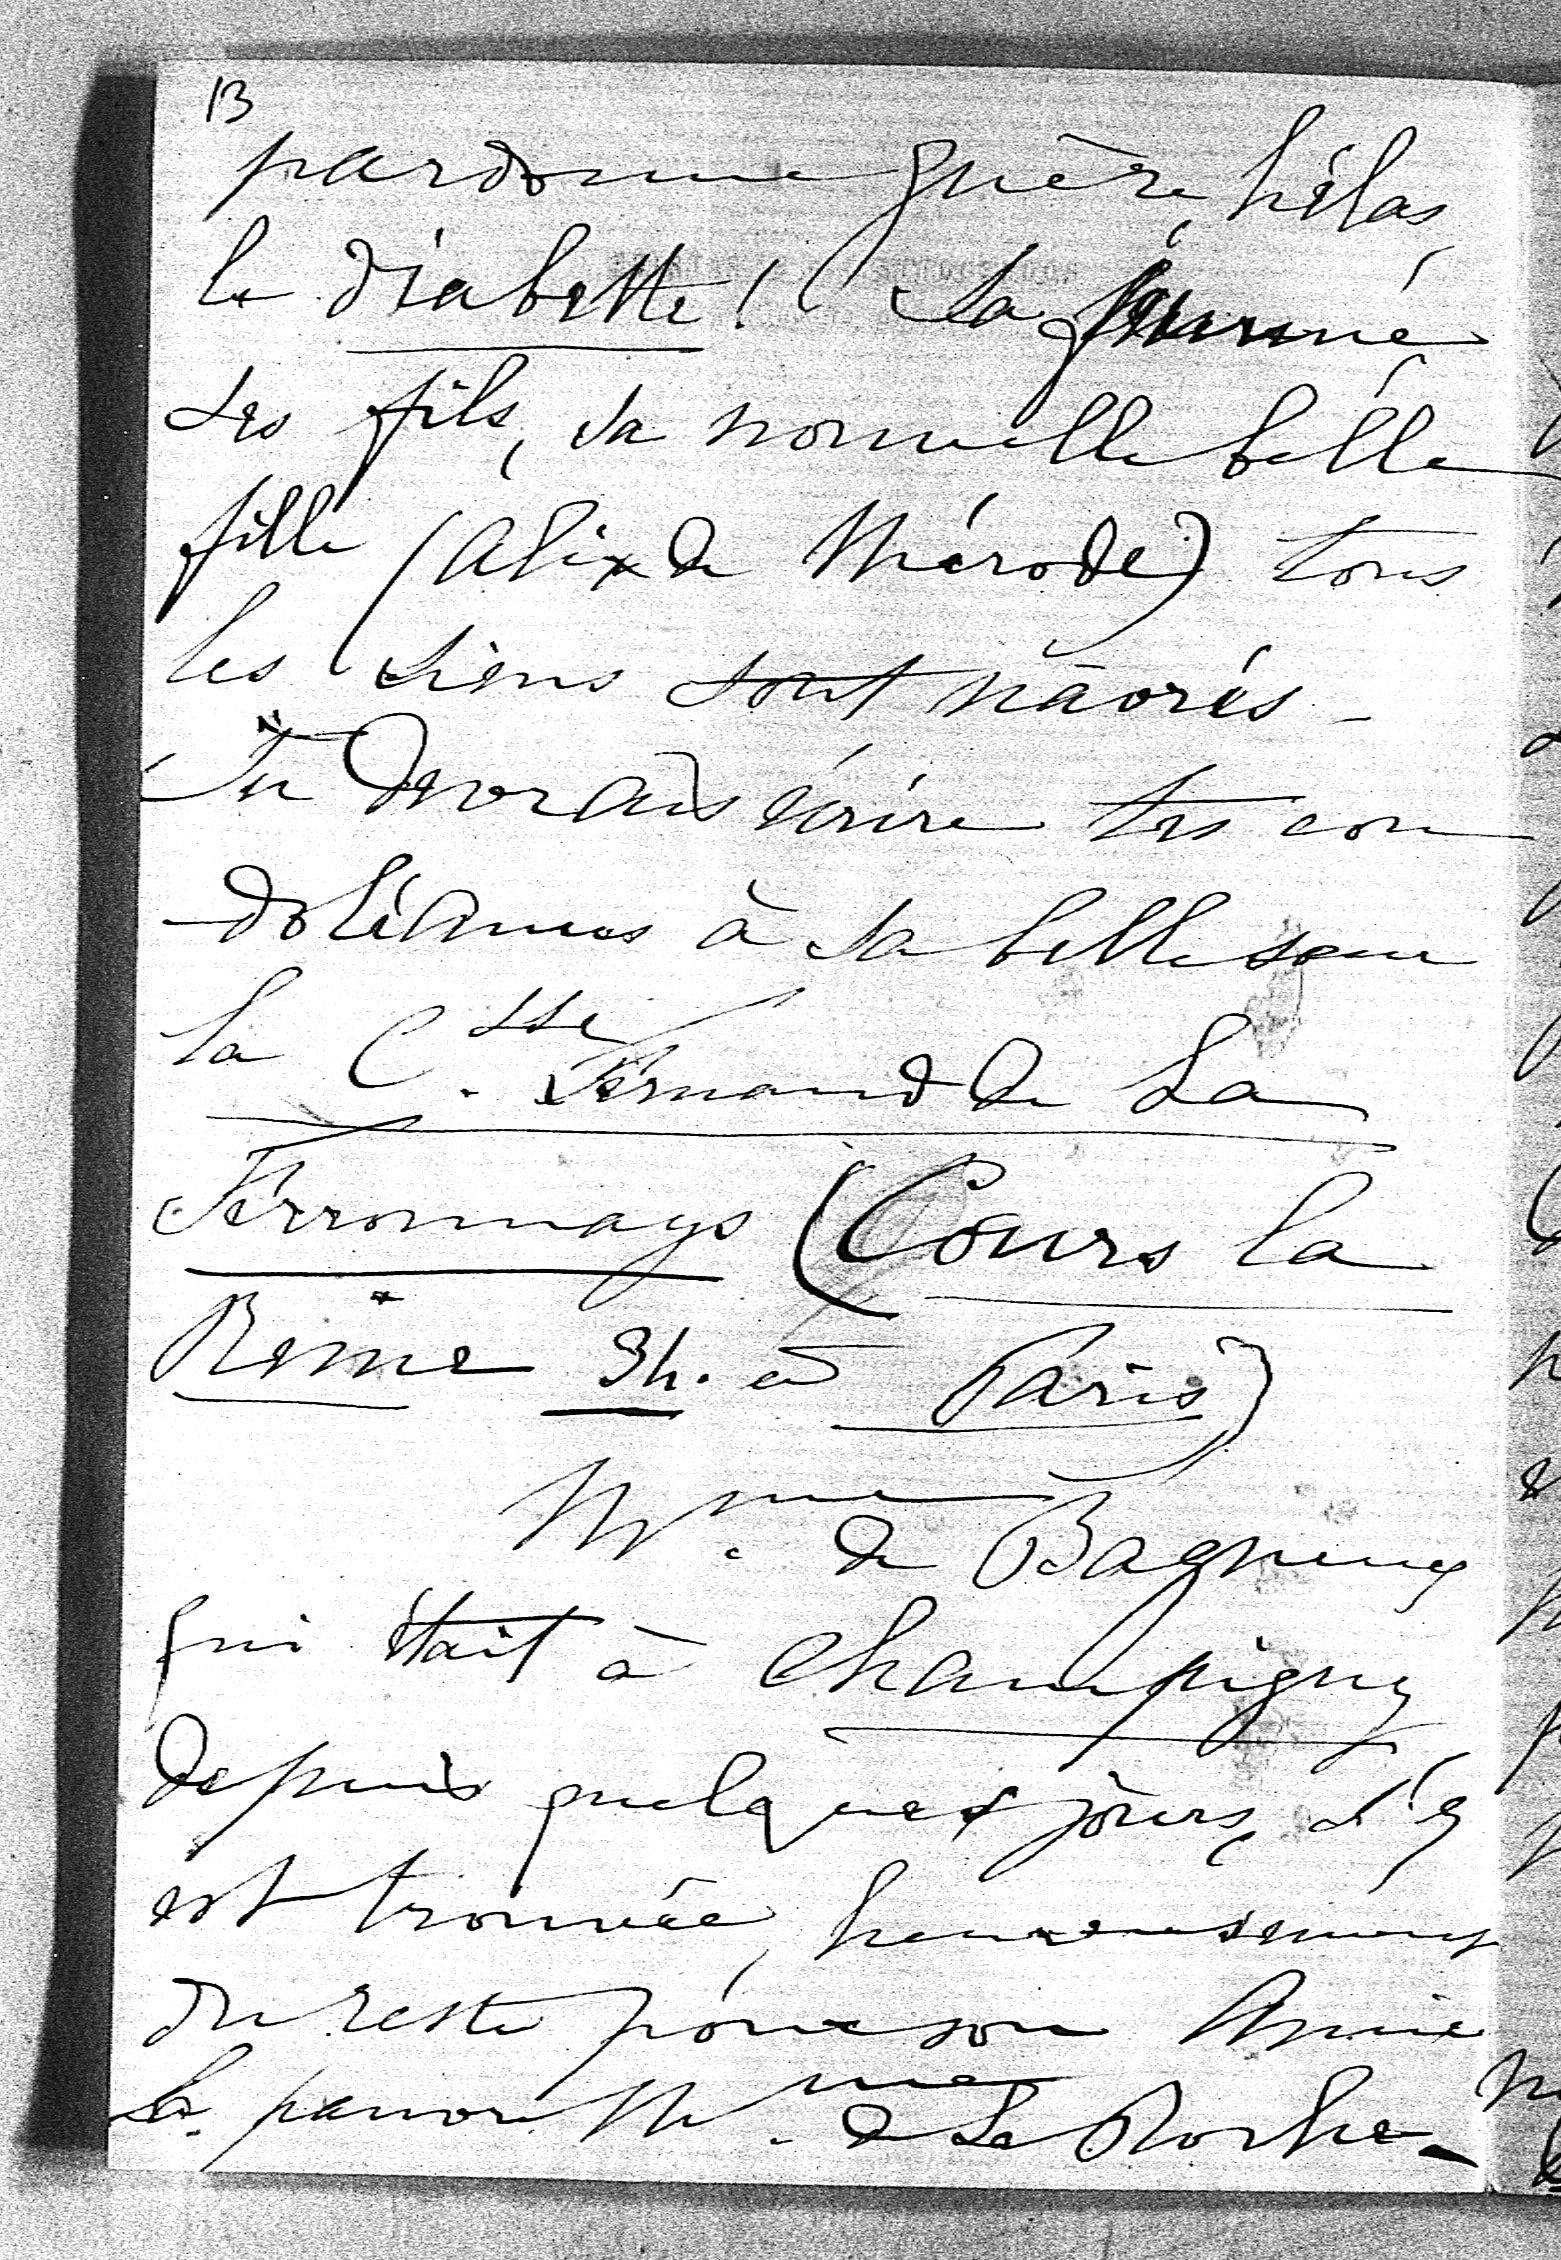 13
pardonne guère, hélas,
le diabette! Sa femme
ses fils, sa nouvelle belle
fille (Alix de Mérode) tous
les siens sont nâvrés -
Tu devrais écrire tes con
-doléances à sa belle soeur
la Csse. Fernand de La
Ferronnays (Cours la
Reine 34. à Paris)
Mme. de Bagneux
qui était à Champigny
depuis quelques jours, s'y
est trouvée, heureusement
du reste pour son Amie
la pauvre Mme. de La Roche-